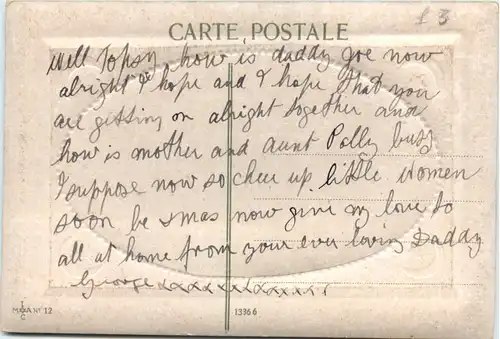 £3
CARTE POSTALE
Well Topsy how is daddy Joe now
alright I hope and I hope that you
are getting on alright together and
how is mother and aunt Polly busy
I suppose now so cheer up little women
soon be xmas now give my love to
all at home from your ever loving Daddy
George xxxxxxxxxxxxxx
MAXA No 12
1336 6